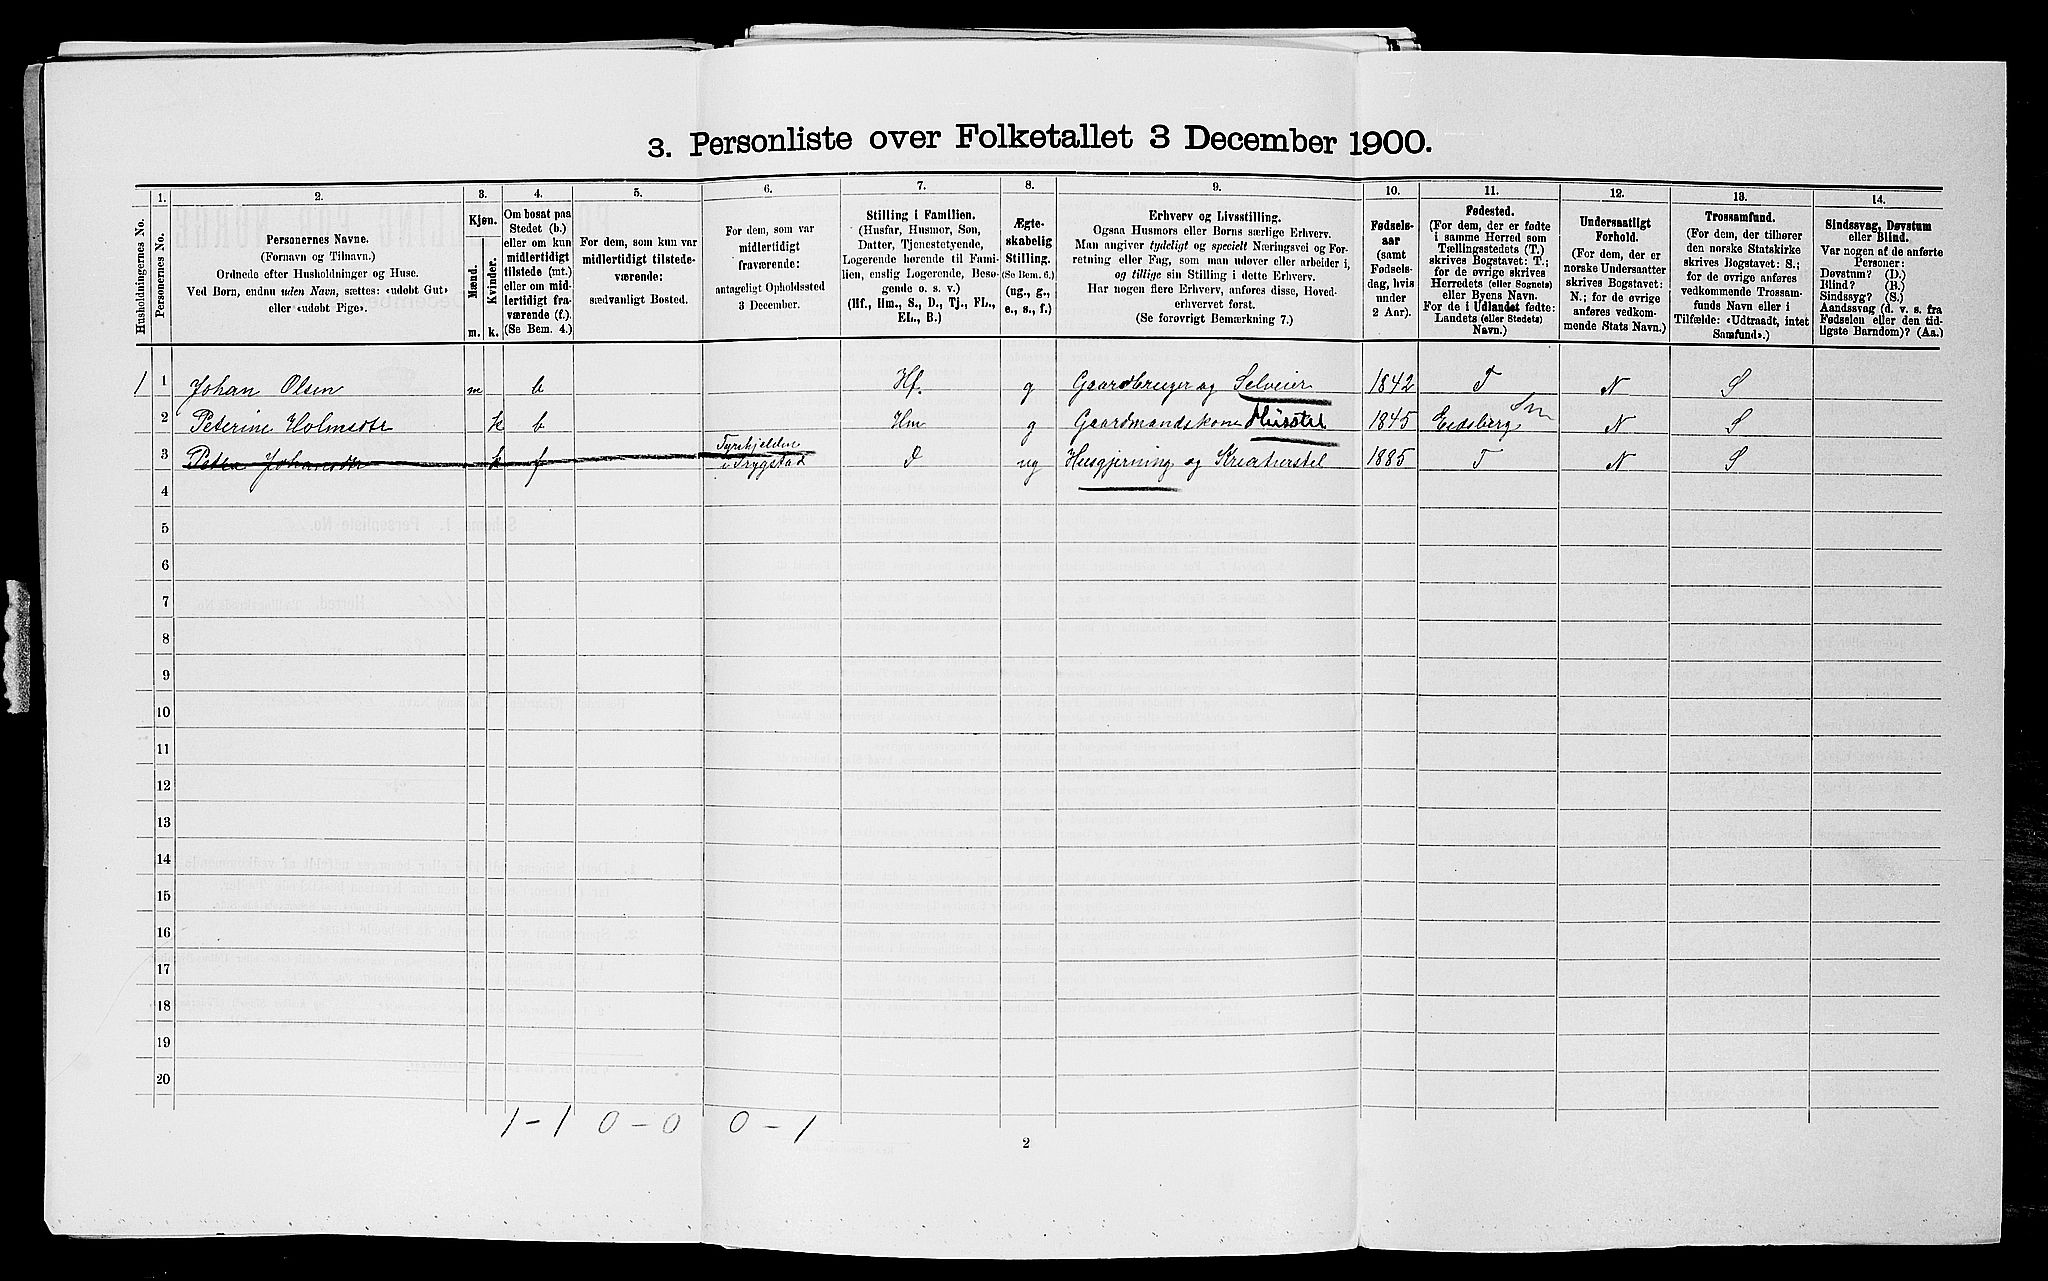 3. Personliste over Folketallet 3 December 1900.
1. 2. 3. 4. 5. 6. 7. 8. 9. 10. 11. 12. 13. 14.
Husholdningernes No.
Personernes No.
Personernes Navne.
(Fornavn og Tilnavn.)
Ordnede efter Husholdninger og Huse.
Ved Børn, endnu uden Navn, sættes: «udøbt Gut»
eller «udøbt Pige».
Kjøn.
Mænd.
Kvinder.
m. k.
Om bosat paa
Stedet (b.)
eller om kun
midlertidigt
tilstede (mt.)
eller om mid-
lertidigt fra-
værende (f.).
(Se Bem. 4.)
For dem, som kun var
midlertidigt tilstede-
værende:
sædvanligt Bosted.
For dem, som var
midlertidigt
fraværende:
antageligt Opholdssted
3 December.
Stilling i Familien.
(Husfar, Husmor, Søn,
Datter, Tjenestetyende,
Logerende hørende til Fami-
lien, enslig Logerende, Besø-
gende o. s. v.)
(Hf., Hm., S., D., Tj., FL.,
EL., B.)
Ægte-
skabelig
Stilling.
(Se Bem. 6.)
(ug., g.,
e., s., f.)
Erhverv og Livsstilling.
Ogsaa Husmors eller Børns særlige Erhverv.
Man angiver tydeligt og specielt Næringsvei og For-
retning eller Fag, som man udøver eller arbeider i,
og tillige sin Stilling i dette Erhverv.
Har nogen flere Erhverv, anføres disse, Hoved-
erhvervet først.
(Se forøvrigt Bemærkning 7.)
Fødsels-
aar
(samt
Fødsels-
dag, hvis
under
2 Aar).
Fødested.
(For dem, der er fødte
i samme Herred som
Tællingsstedets (T.)
skrives Bogstavet: T.;
for de øvrige skrives
Herredets (eller Sognets)
eller Byens Navn.
For de i Udlandet fødte:
Landets (eller Stedets)
Navn.)
Undersaatligt
Forhold.
(For dem, der er
norske Undersaatter
skrives Bogstavet:
N.; for de øvrige
anføres vedkom-
mende Stats Navn.)
Trossamfund.
(For dem, der tilhører
den norske Statskirke
skrives Bogstavet: S.;
for de øvrige anføres
vedkommende Trossam-
funds Navn eller i
Tilfælde: «Udtraadt, intet
Samfund».)
Sindssvag, Døvstum
eller Blind.
Var nogen af de anførte
Personer:
Døvstum? (D.)
Blind? (B.)
Sindssyg? (S.)
Aandssvag (d. v. s. fra
Fødselen eller den tid-
ligste Barndom)? (Aa.)
1 1 Johan Olsen m b Hf. g Gaardbruger og Selveier 1842 T N S
2 Peterine Holmsdtr k b Hm g Gaardmandskone Husstel 1845 Eidsberg Sm N S
3 Petra Johansdtr k f Tyrihjelden i Trygstad d ug Husgjerning og Kreaturstel 1885 T N S
4
5
6
7
8
9
10
11
12
13
14
15
16
17
18
19
20
1 - 1 0 - 0 0 - 1
2